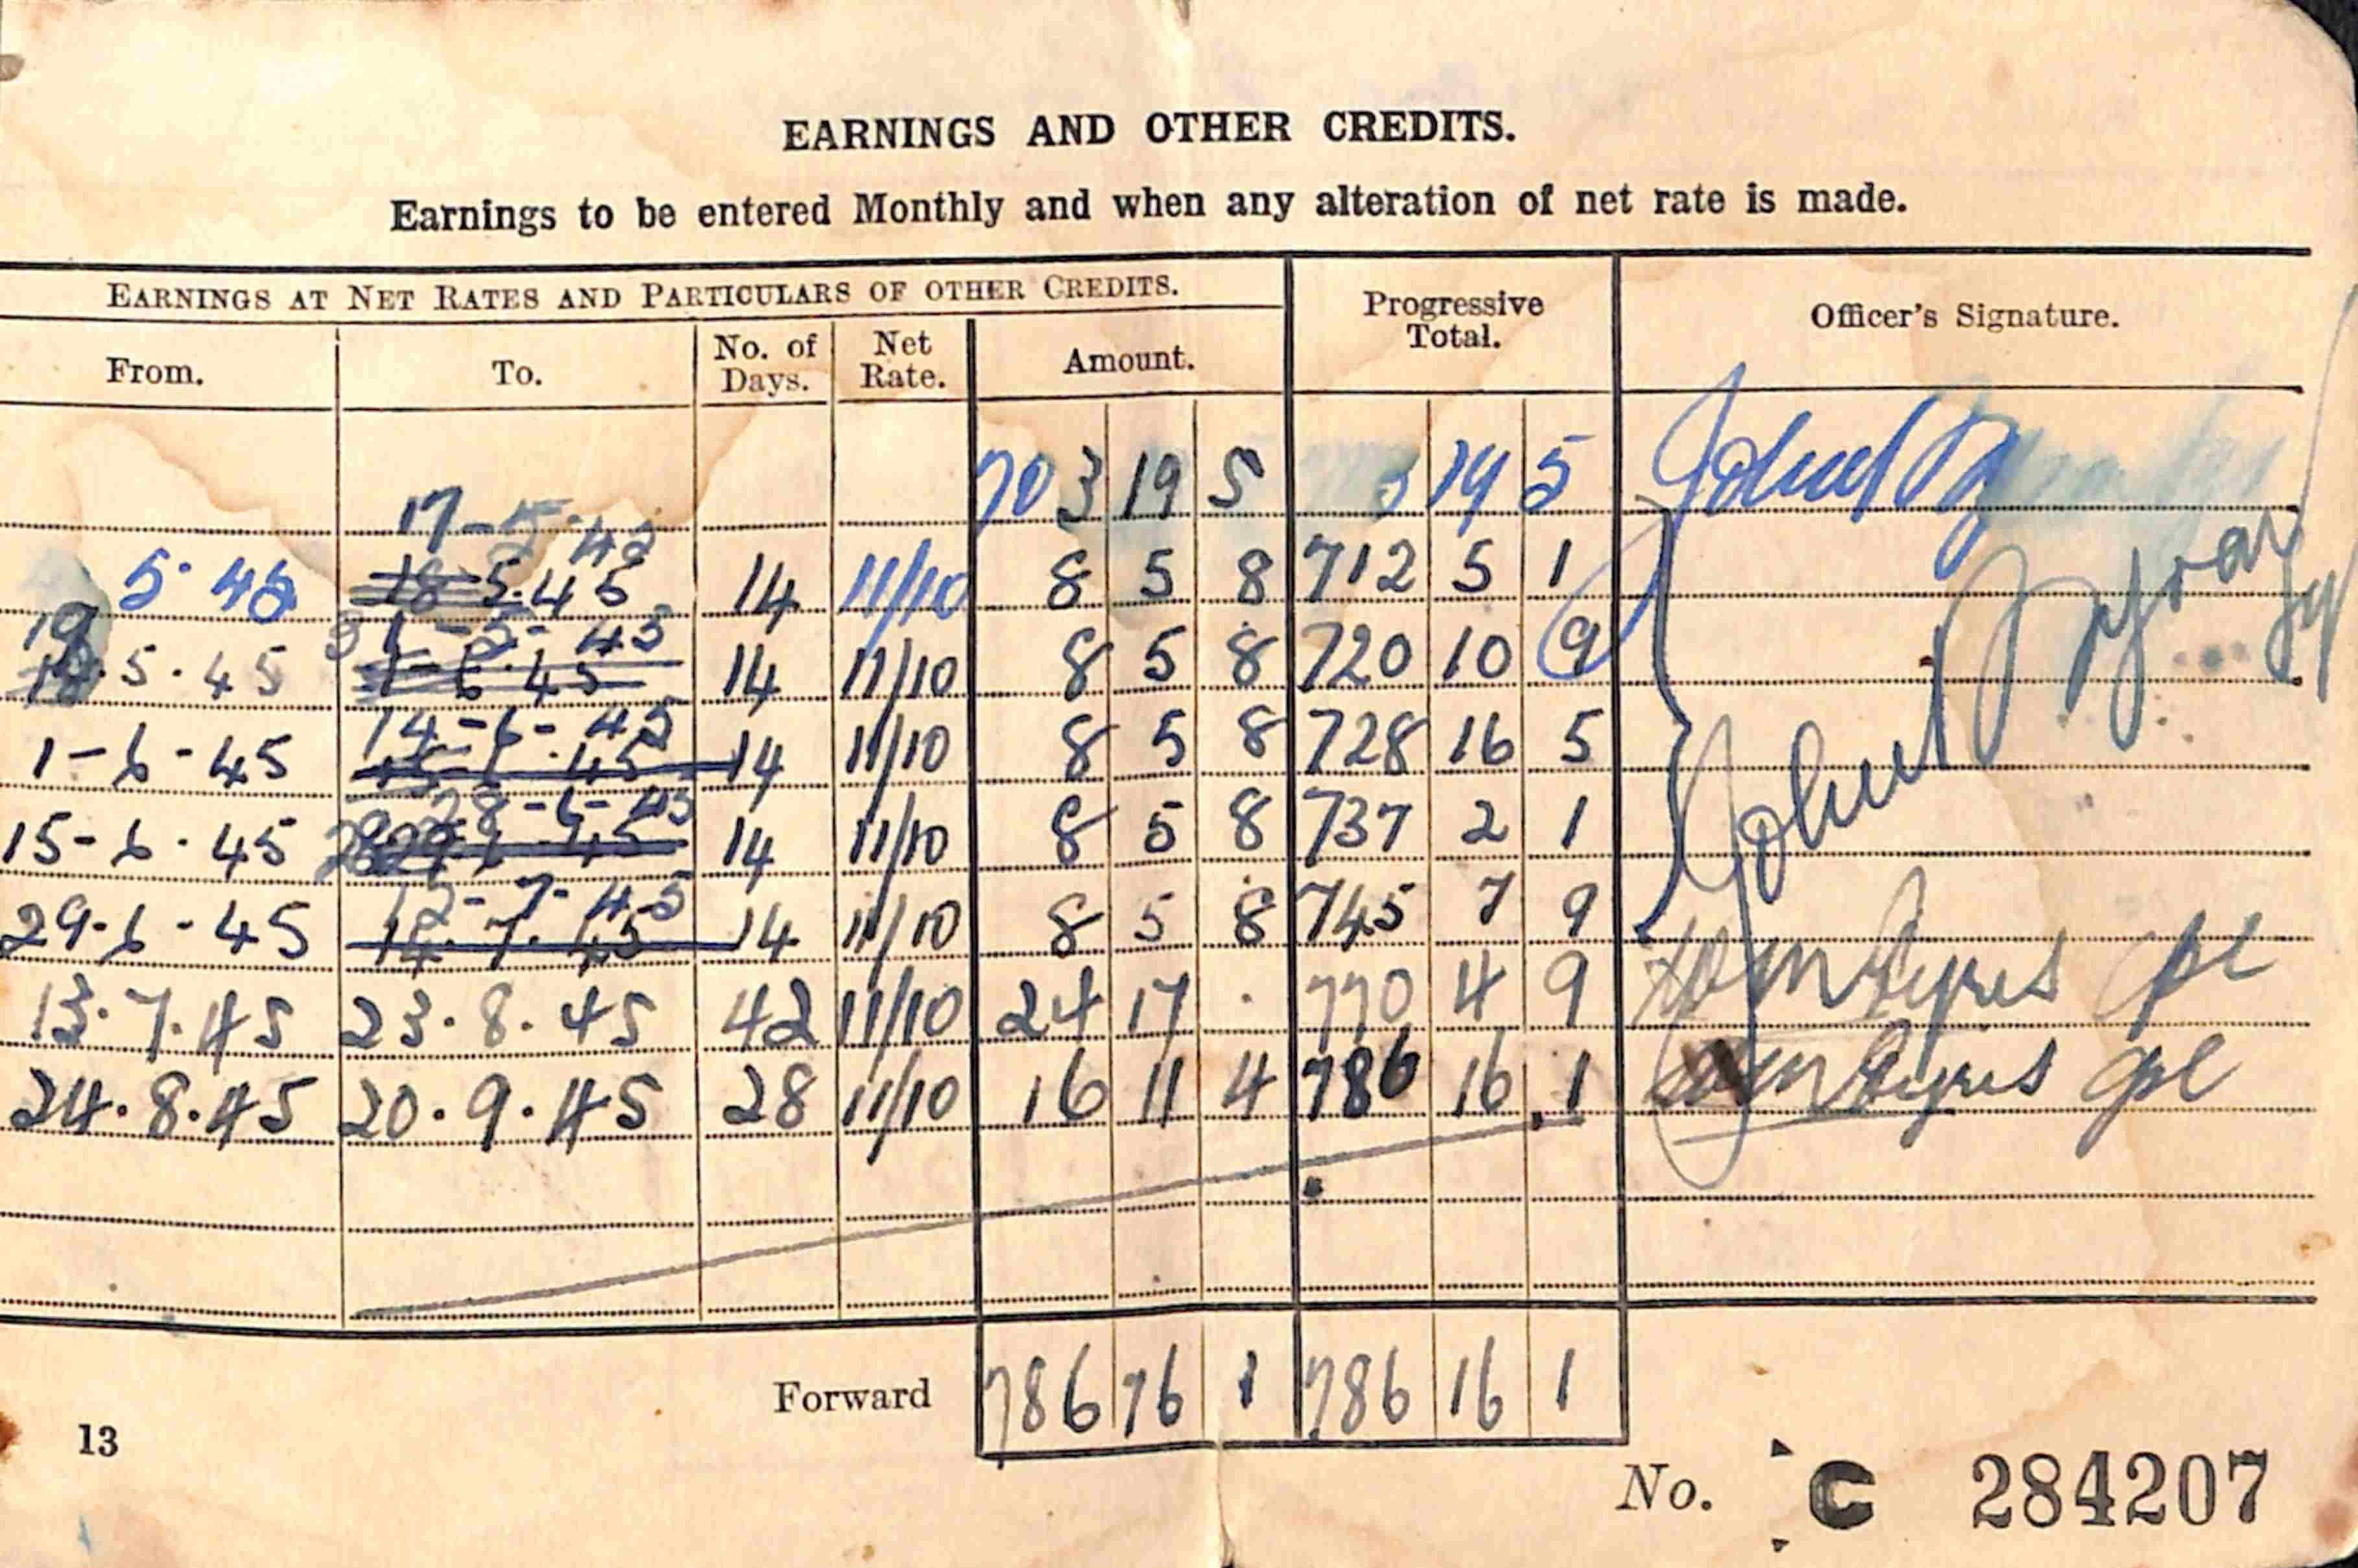 EARNINGS AND OTHER CREDITS.
Earnings to be entered Monthly and when any alteration of net rate is made.
EARNINGS AT NET RATES AND PARTICULARS OF OTHER CREDITS.
Progressive Total.
Officer's Signature.
From. To. No. of Days. Net Rate. Amount.
703 19 5 3 19 5
17-5-45
5.45 18 5.45 14 11/10 8 5 8 712 5 1
31-5-45
18.5.45 1-6.45 14 11/10 8 5 8 720 10 9
14-6-45
1-6-45 15-6-45 14 11/10 8 5 8 728 16 5
28-6-45
15-6.45 29-6-45 14 11/10 8 5 8 737 2 1
12-7-45
29.6-45 14.7.45 14 11/10 8 5 8 745 7 9
13.7.45 23.8.45 42 11/10 24 17 . 770 4 9
24.8.45 20.9.45 28 11/10 16 11 4 786 16 1
Forward 786 16 1 786 16 1
13
No. C 284207